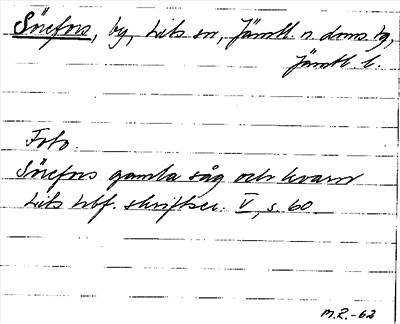 Sörefors, by, Lits sn, Jämtl. n. doms bg,
Jämtl. l.
Foto.
Sörefors gamla såg och kvarn
Lits hbf. skriftser. V, s. 60
M.Z.-62